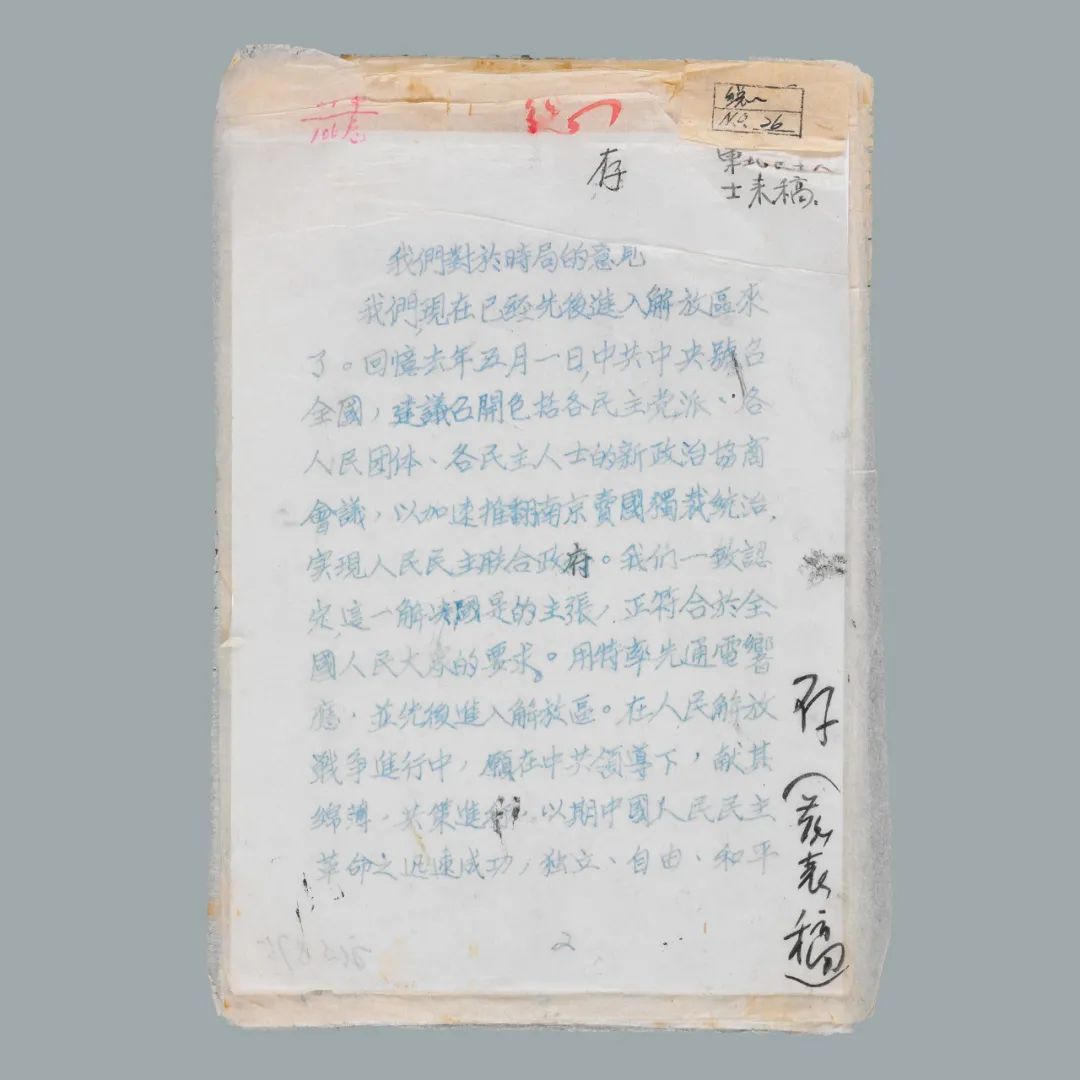 统一
NO. 26
存
東北民主人
士来稿.
我們對於時局的意見
我們現在已經先後進入解放區來
了。回憶去年五月一日,中共中央號召
全國,建議召開包括各民主党派、各
人民团体、各民主人士的新政治協商
會議,以加速推翻南京賣國獨裁統治,
实現人民民主联合政府。我们一致認
定這一解决國是的主張,正符合於全
國人民大家的要求。用特率先通電響
應,並先後進入解放區。在人民解放
戰争進行中,願在中共领導下,献其
綿薄,共策進行,以期中國人民民主
革命之迅速成功,独立、自由、和平
2
存(发表稿)